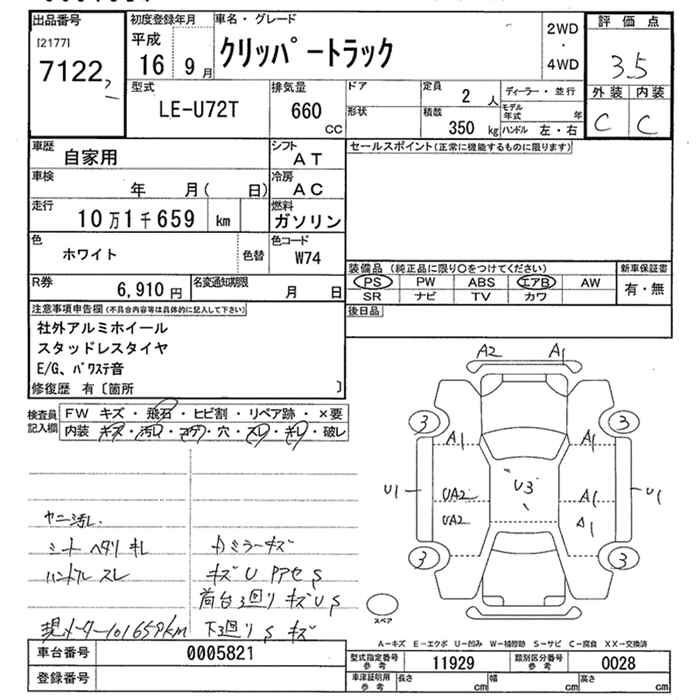 出品番号
[2177]
7122
初度登録年月
平成
16 9月
車名・グレード
クリッパートラック
2WD
・
4WD
評価点
3.5
外装 内装
C C
型式
LE-U72T
排気量
660
CC
ドア
形状
定員
2人
積載
350 kg
ディーラー・並行
モデル年式 年
ハンドル 左・右
車歴
自家用
シフト
AT
車検
年 月( 日)
冷房
AC
走行
10万1千659 km
燃料
ガソリン
色
ホワイト
色替
色コード
W74
R券
6,910円
名変通知期限
月 日
セールスポイント(正常に機能するものに限ります)
装備品(純正品に限り○をつけてください)
PS PW ABS エアB AW
SR ナビ TV カワ
新車保証書
有・無
後日品
注意事項申告欄(不具合内容等は具体的に記入して下さい)
社外アルミホイール
スタッドレスタイヤ
E/G、パワステ音
修復歴 有〔箇所 〕
検査員記入欄
FW キズ・飛石・ヒビ割・リペア跡・×要
内装 キズ・汚レ・コゲ・穴・スレ・キレ・破レ
ヤニ汚レ.
シート ヘタリ キレ
ハンドル スレ
現メーター101659km
カミラーキズ
キズ U アセ S
荷台3回り キズ U S
下3回り S キズ
A2 A1
3 3
A1 A1
U1 UA2 U3 A1 U1
UA2 A1
3 3
スペア
A-キズ E-エクボ U-凹み W-補修跡 S-サビ C-腐食 XX-交換済
車台番号
0005821
登録番号
型式指定番号
参考
11929
類別区分番号
参考
0028
車津証明用
参考
長さ cm
幅 cm
高さ cm